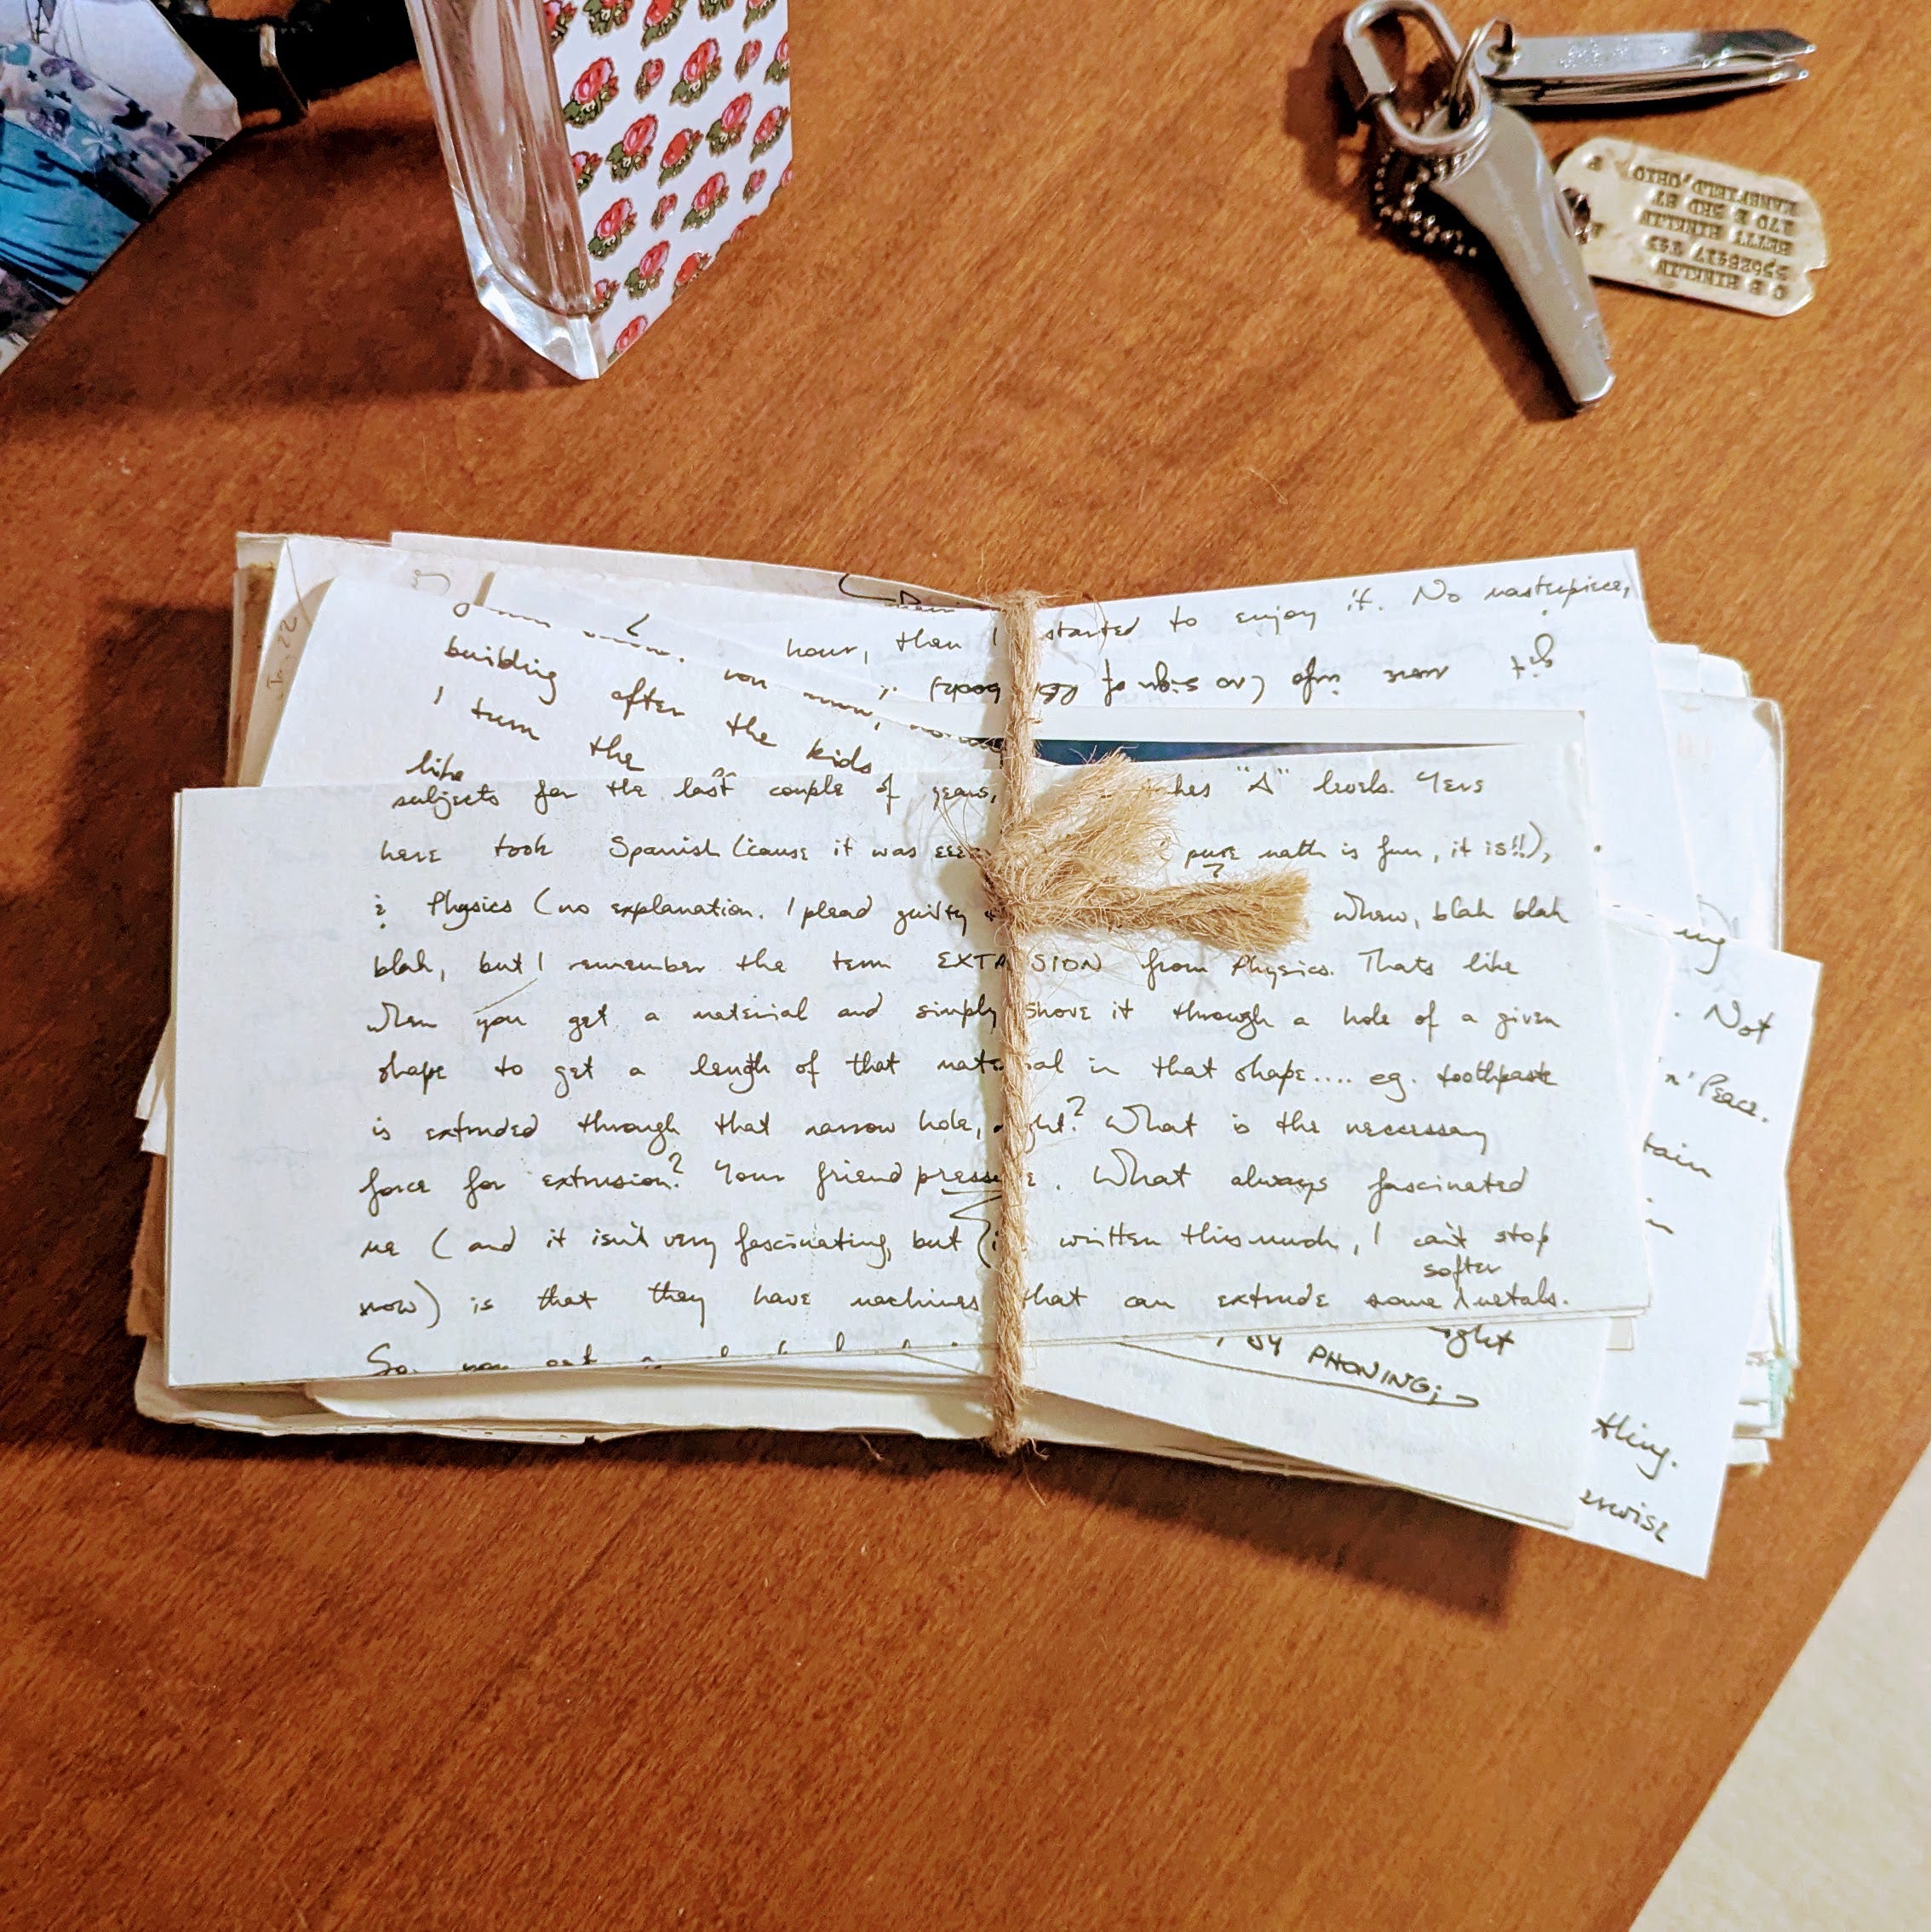 C B HINKLIN
BETTY HINKLIN
170 E 3RD ST
MANSFIELD, OHIO
hour, then I started to enjoy it. No masterpiece,
git more info (no sign of books)
building after the kids
I turn the
like
subjects for the last couple of years, "A" levels. Yers
here took Spanish ('cause it was pure math is fun, it is!!),
& Physics (no explanation. I plead guilty whew, blah blah
blah, but I remember the term EXTR SION from Physics. Thats like
when you get a material and simply shove it through a hole of a given
shape to get a length of that mate ial in that shape.... eg. toothpaste
is extruded through that narrow hole, right? What is the necessary
force for extrusion? Your friend pressure. What always fascinated
me (and it isn't very fascinating, but written this much, I can't stop
softer
now) is that they have machines that can extrude some metals.
So
ight
, BY PHONING;
ing
. Not
'n' Peace.
tain
in
thing.
erwise